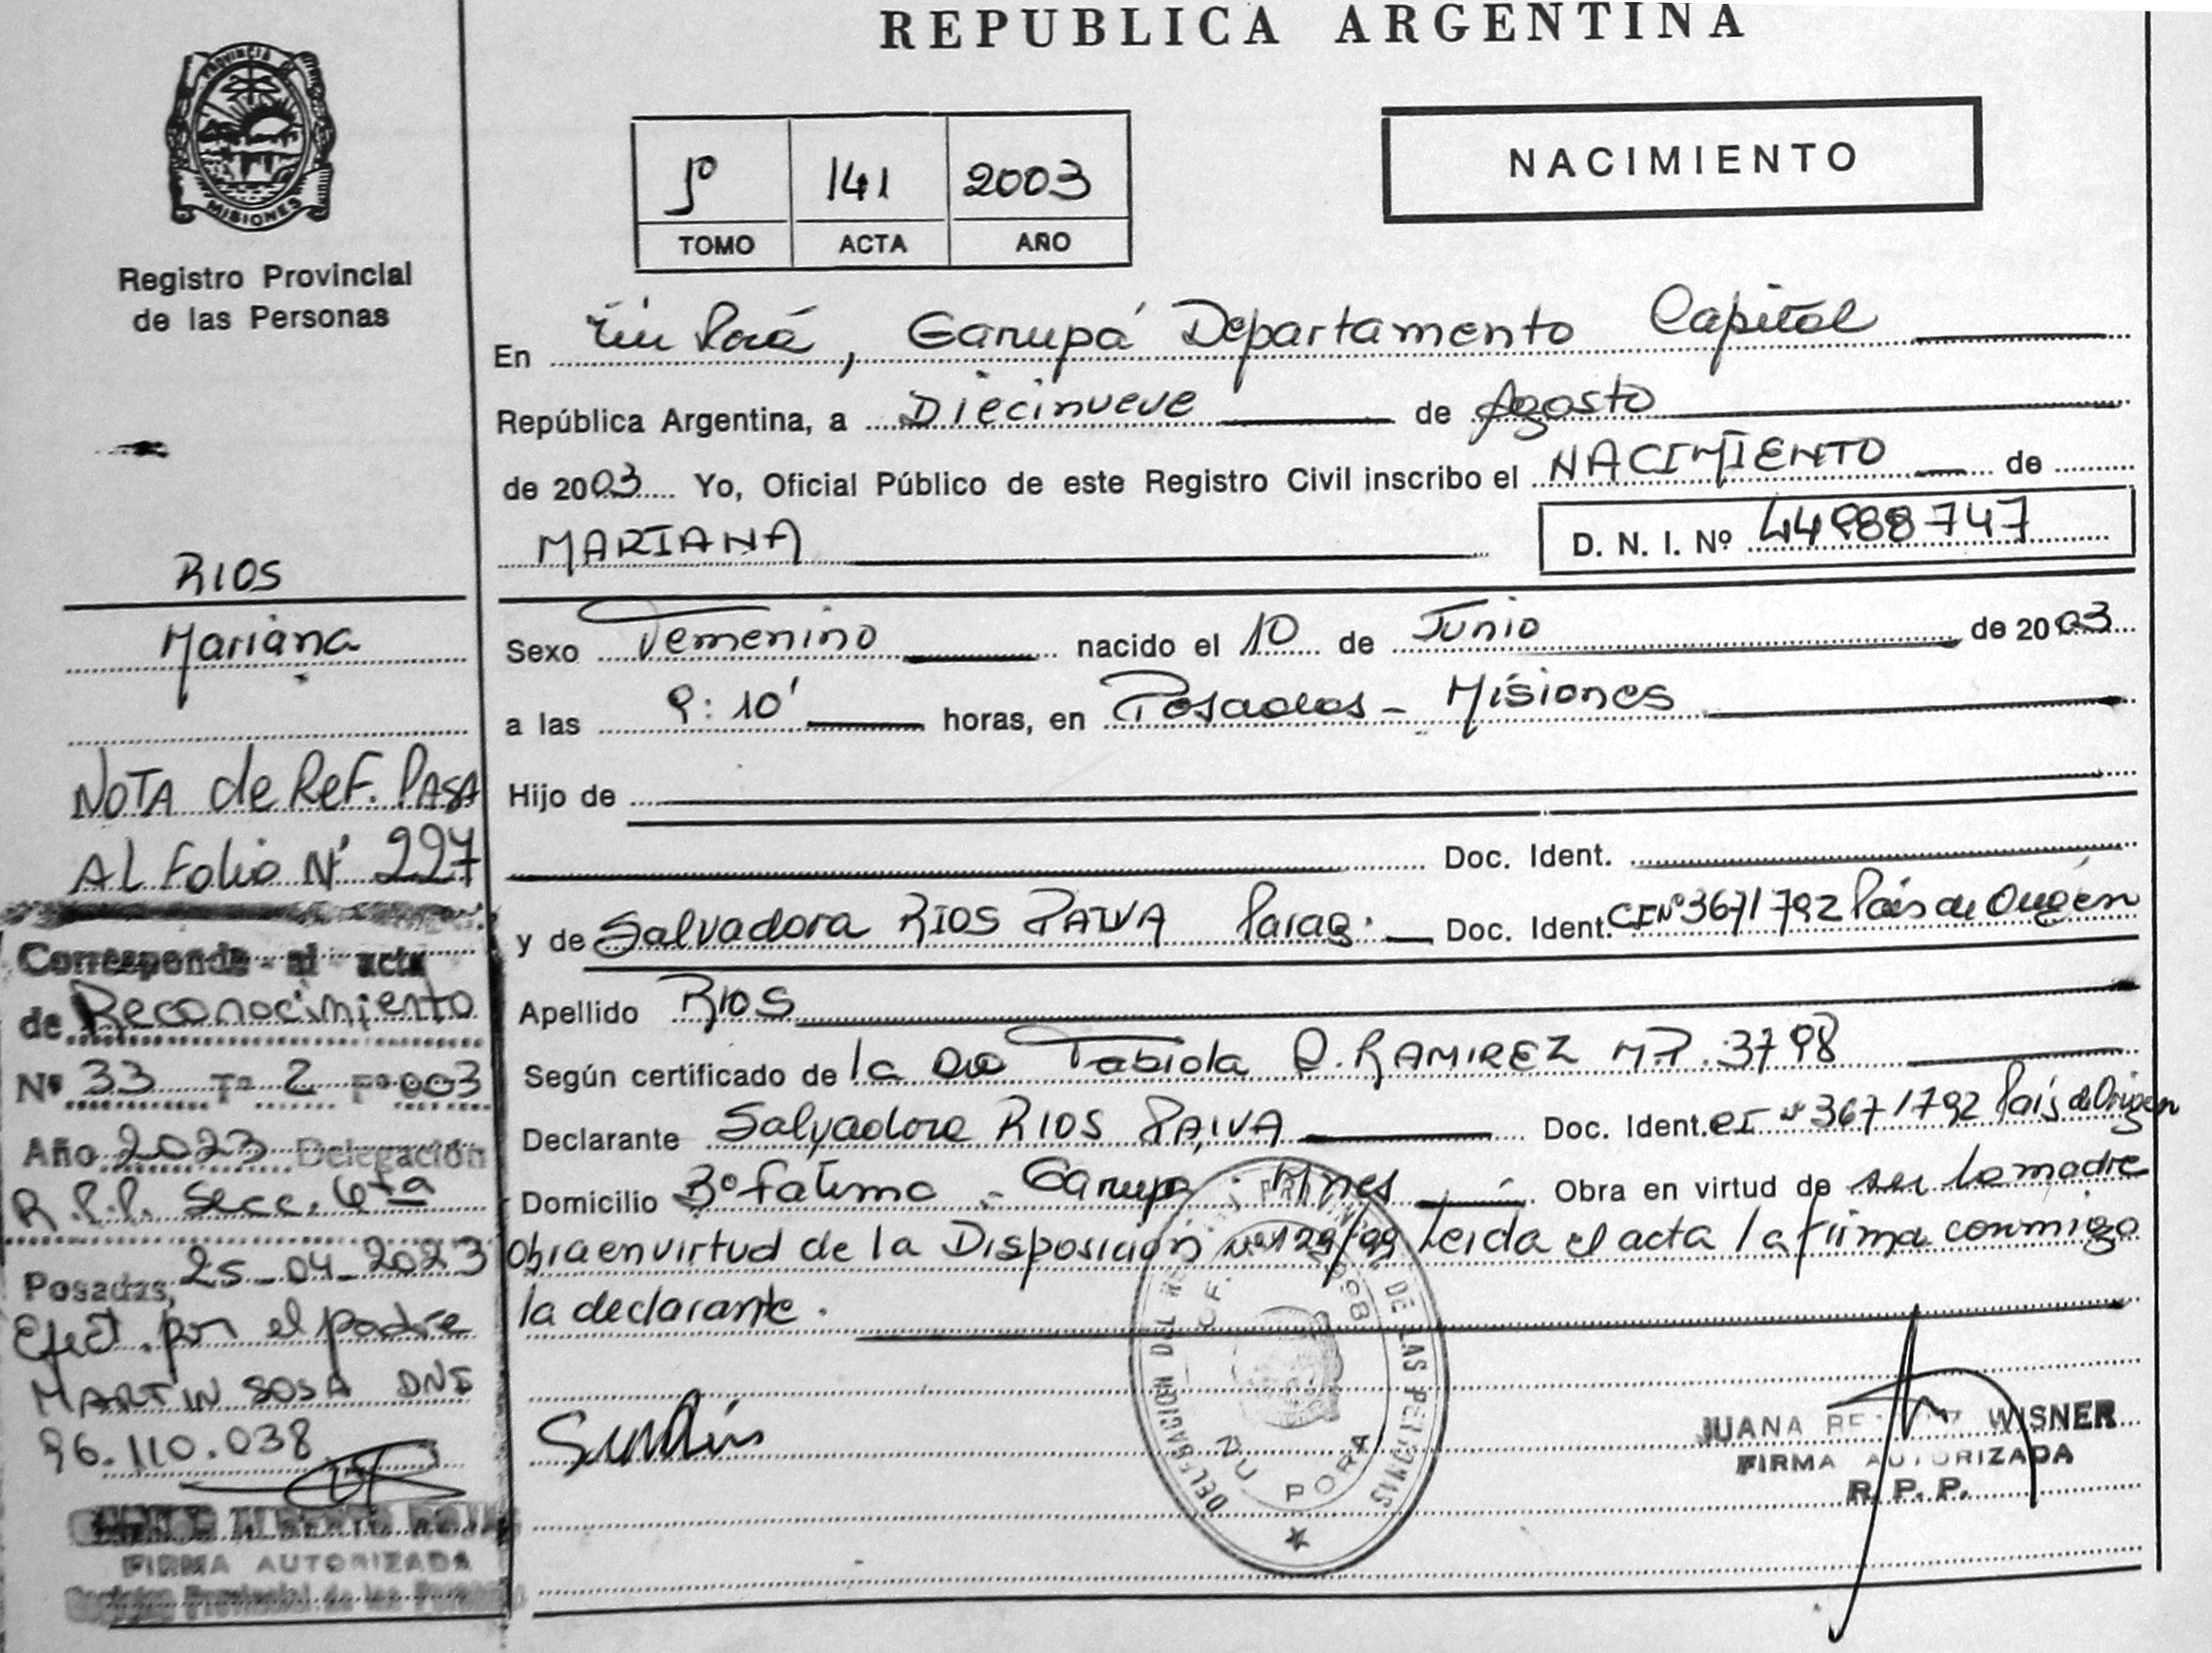 REPUBLICA ARGENTINA
PROVINCIA DE
MISIONES
Registro Provincial
de las Personas
1º 141 2003
TOMO ACTA AÑO
NACIMIENTO
En Ñu Porá, Garupá Departamento Capital
República Argentina, a Diecinueve de Agosto
de 2003 Yo, Oficial Público de este Registro Civil inscribo el NACIMIENTO de
MARIANA D. N. I. Nº 44988747
Sexo Femenino nacido el 10 de Junio de 2003
a las 9:10' horas, en Posadas - Misiones
Hijo de
Doc. Ident.
y de Salvadora RIOS PAIVA Parag. Doc. Ident. CI Nº 3671792 País de Origen
Apellido RIOS
Según certificado de la Dra Fabiola R. RAMIREZ M.P. 3798
Declarante Salvadora RIOS PAIVA Doc. Ident. CI Nº 3671792 País de Origen
Domicilio Bº Fatima - Garupa Mnes Obra en virtud de ser la madre
Obra en virtud de la Disposición Nº 129/99 Leida el acta la firma conmigo
la declarante.
RIOS
Mariana
NOTA de REF. PASA
AL Folio Nº 227
Corresponde al acta
de Reconocimiento
Nº 33 Tº 2 Fº 003
Año 2023 Delegación
R.P.P. Secc. 6ta
Posadas, 25-04-2023
Efect. por el padre
MARTIN SOSA DNI
96.110.038
FIRMA AUTORIZADA
Registro Provincial de las Personas
DE LAS PERSONAS
ÑU PORA
JUANA WISNER
FIRMA AUTORIZADA
R. P. P.